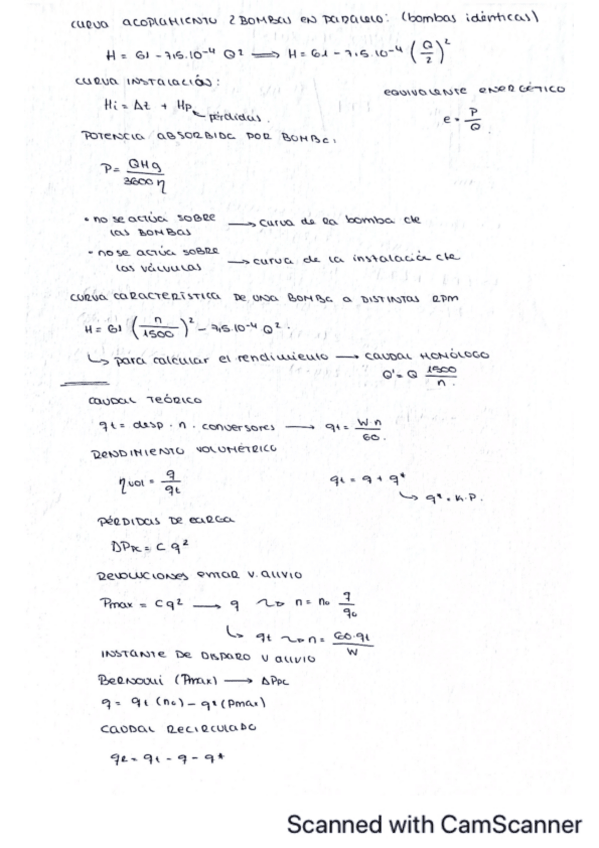 CURVA ACOPLAMIENTO 2 BOMBAS EN PARALELO: (bombas idénticas)
H = 61 - 7,5.10⁻⁴ Q² ⟶ H = 61 - 7,5.10⁻⁴ (Q/2)²
CURVA INSTALACIÓN:
Hi = Δz + Hp
pérdidas.
EQUIVALENTE ENERGÉTICO
e = P/Q
POTENCIA ABSORBIDA POR BOMBA:
P = QHg / 3600η
• no se actúa SOBRE LAS BOMBAS ⟶ curva de la bomba cte
- no se actúa SOBRE las válvulas ⟶ curva de la instalación cte
CURVA CARACTERÍSTICA DE UNA BOMBA A DISTINTAS RPM
H = 61 (n/1500)² - 7,5.10⁻⁴ Q².
↳ para calcular el rendimiento ⟶ CAUDAL HOMÓLOGO
Q' = Q 1500/n.
CAUDAL TEÓRICO
qt = desp. n. conversores ⟶ qt = W n/60.
RENDIMIENTO VOLUMÉTRICO
ηvol = q/qt
qt = q + q*
↳ q* = K.P.
PÉRDIDAS DE CARGA
ΔPpc = C q²
REVOLUCIONES
V. ALIVIO
Pmax = C q² ⟶ q ⟿ n = n₀ q/q₀
↳ qt ⟿ n = 60.qt/W
INSTANTE DE DISPARO V ALIVIO
Bernoulli (Pmax) ⟶ ΔPpc
q = qt (n₀) - q* (Pmax)
CAUDAL RECIRCULADO
qr = qt - q - q*
Scanned with CamScanner